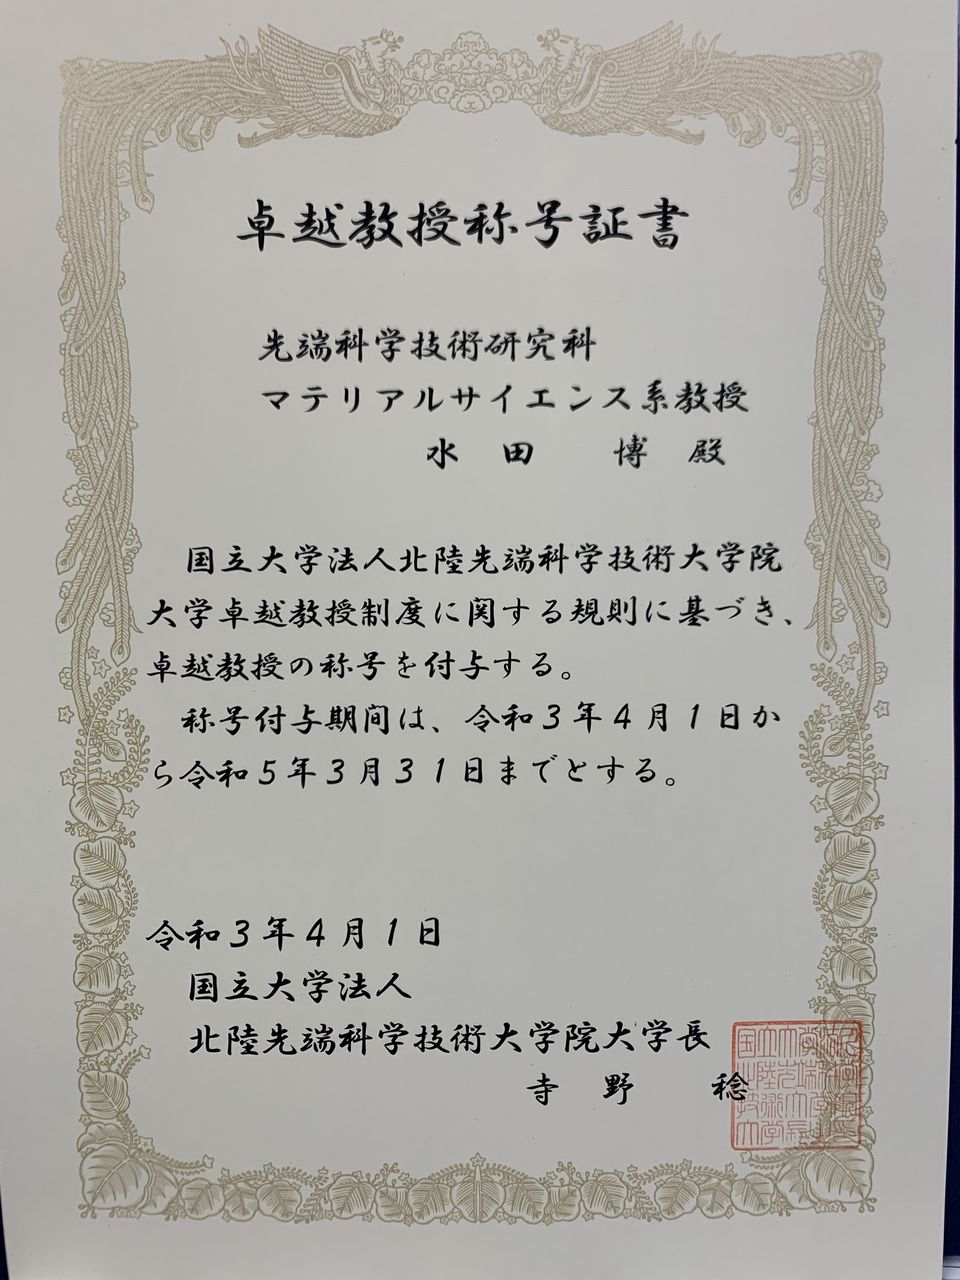 卓越教授称号証書
先端科学技術研究科
マテリアルサイエンス系教授
水田 博 殿
国立大学法人北陸先端科学技術大学院
大学卓越教授制度に関する規則に基づき、
卓越教授の称号を付与する。
称号付与期間は、令和3年4月1日か
ら令和5年3月31日までとする。
令和3年4月1日
国立大学法人
北陸先端科学技術大学院大学長
寺野 稔